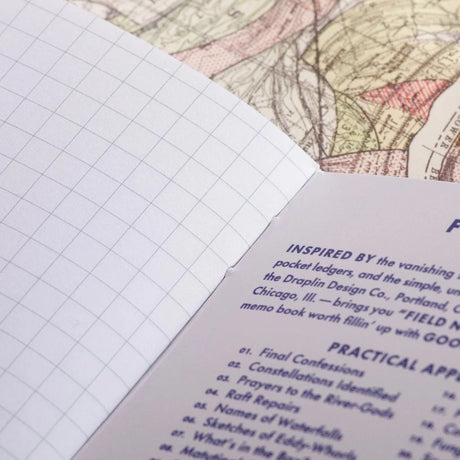 INSPIRED BY the vanishing
pocket ledgers, and the simple, un
the Draplin Design Co., Portland,
Chicago, Ill. — brings you "FIELD N
memo book worth fillin' up with GOO
PRACTICAL APP
01. Final Confessions
02. Constellations Identified
03. Prayers to the River-Gods
04. Raft Repairs
05. Names of Waterfalls
06. Sketches of Eddy-Whorls
07. What's in the
08.